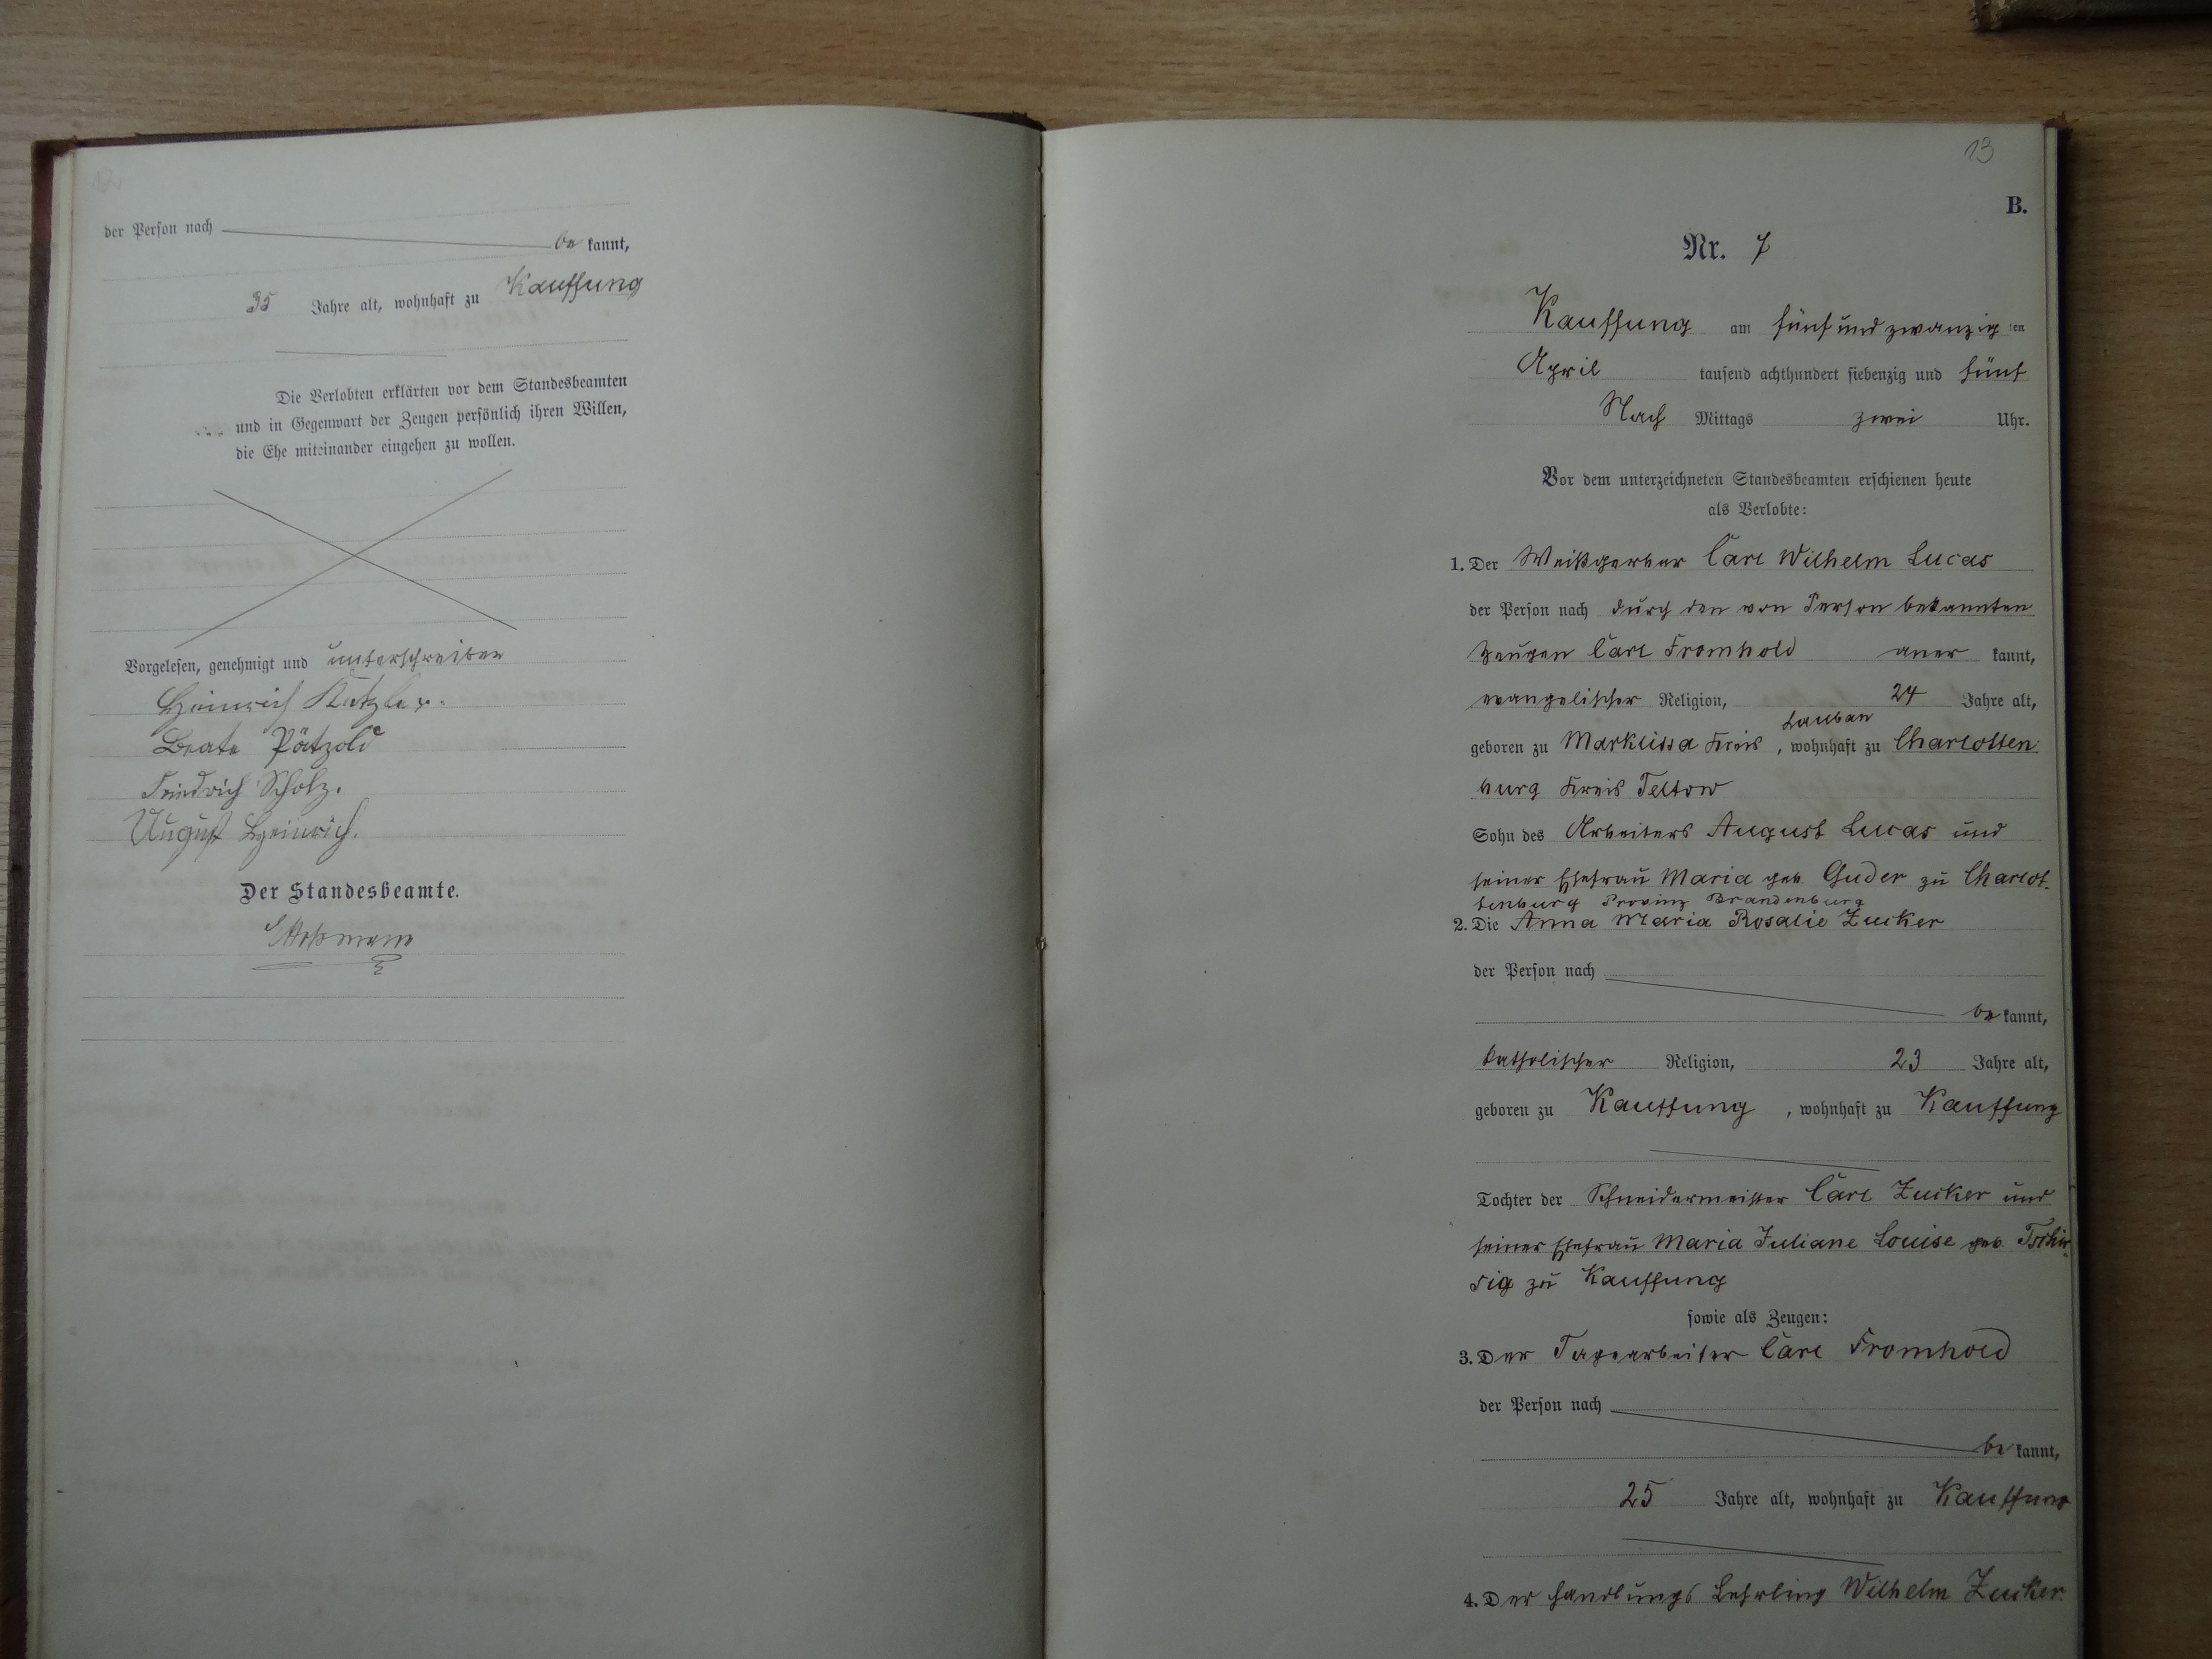 der Person nach
be kannt,
35 Jahre alt, wohnhaft zu Kauffung
Die Verlobten erklärten vor dem Standesbeamten
und in Gegenwart der Zeugen persönlich ihren Willen,
die Ehe miteinander eingehen zu wollen.
Vorgelesen, genehmigt und unterschreiben
Heinrich
Beate Pätzold
Friedrich Scholz.
August Heinrich.
Der Standesbeamte.
13
B.
Nr. 7
Kauffung am fünf und zwanzig ten
April tausend achthundert siebenzig und fünf
Nach Mittags zwei Uhr.
Vor dem unterzeichneten Standesbeamten erschienen heute
als Verlobte:
1. Der Weißgerber Carl Wilhelm Lucas
der Person nach durch den von Person bekannten
Zeugen Carl Fromhold aner kannt,
evangelischer Religion, 24 Jahre alt,
Lauban
geboren zu Marklissa Kreis , wohnhaft zu Charlotten
burg Kreis Teltow
Sohn des Arbeiters August Lucas und
seiner Ehefrau Maria geb Guder zu Charlot-
tenburg Provinz Brandenburg
2. Die Anna Maria Rosalie Zucker
der Person nach
be kannt,
katholischer Religion, 23 Jahre alt,
geboren zu Kauffung , wohnhaft zu Kauffung
Tochter der Schneidermeister Carl Zucker und
seiner Ehefrau Maria Juliane Louise geb. Tschir-
sig zu Kauffung
sowie als Zeugen:
3. Der Tagearbeiter Carl Fromhold
der Person nach
be kannt,
25 Jahre alt, wohnhaft zu Kauffung
4. Der Handlungs Lehrling Wilhelm Zucker